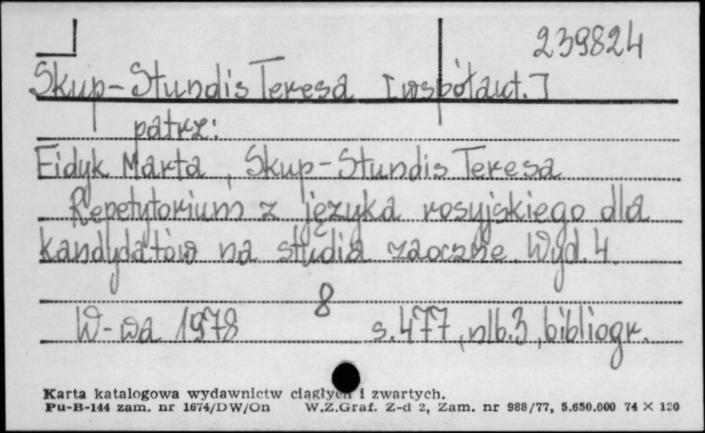 239824
Skup-Stundis Teresa [współaut.]
patrz:
Fidyk Marta, Skup-Stundis Teresa
Repetytorium z języka rosyjskiego dla
kandydatów na studia zaoczne. Wyd. 4.
8
W-wa 1978 s. 477, nlb. 3, bibliogr.
Karta katalogowa wydawnictw ciągłych i zwartych.
Pu-B-144 zam. nr 1674/DW/On W.Z.Graf. Z-d 2, Zam. nr 988/77, 5.650.000 74 × 120